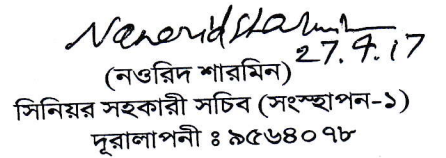 27.9.17
(নওরিদ শারমিন)
সিনিয়র সহকারী সচিব (সংস্হাপন-১)
দূরালাপনী ঃ ৯৫৬৪০৭৮